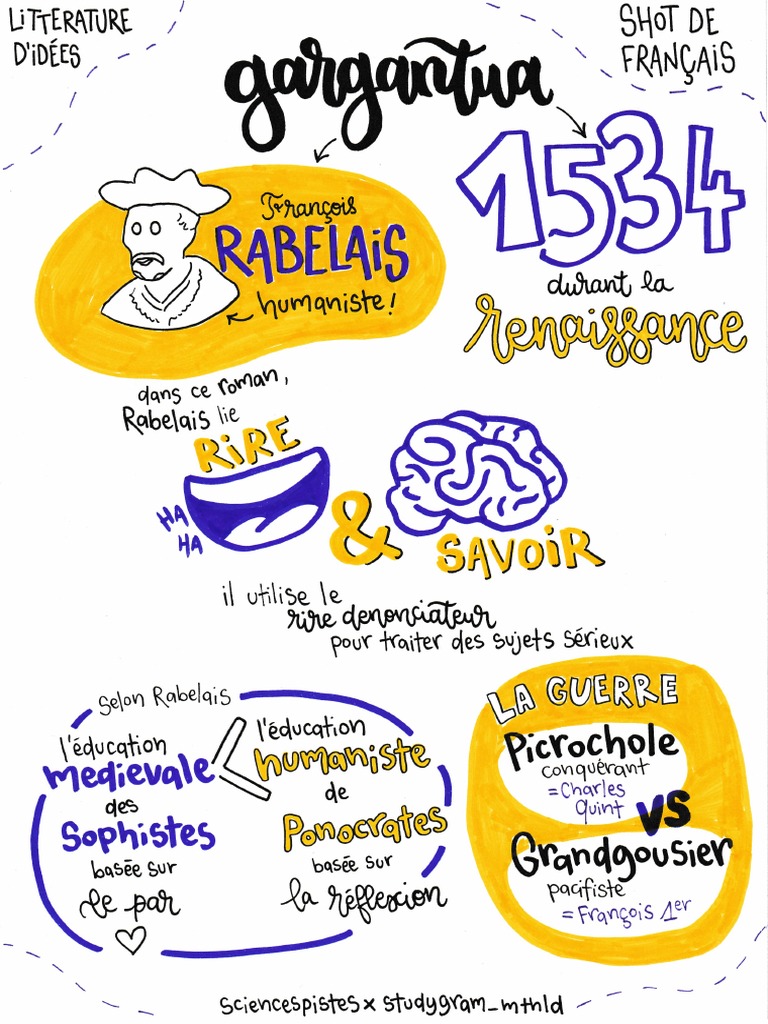 LiTTERATURE
D'iDÉES
SHOT DE
FRANÇAiS
gargantua
François
RABELAiS
humaniste!
1534
durant la
renaissance
dans ce roman,
Rabelais lie
RiRE
HA
HA
&
SAVOiR
il utilise le
rire denonciateur
pour traiter des sujets sérieux
Selon Rabelais
l'éducation
medievale
des
Sophistes
basée sur
le par
<
l'éducation
humaniste
de
Ponocrates
basée sur
la réflexion
LA GUERRE
Picrochole
conquérant
=Charles
Quint
VS
Grandgousier
pacifiste
=François 1er
sciencespistes x studygram_mthld